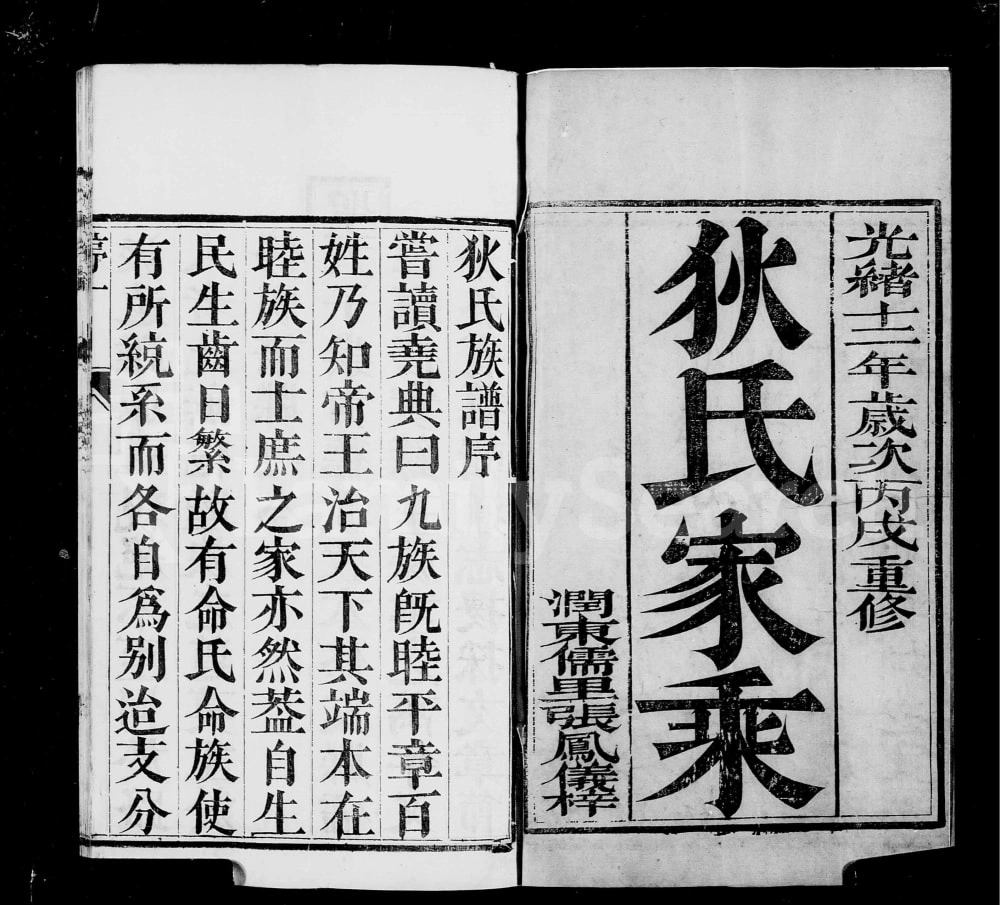 光緒十二年歲次丙戌重修
狄氏家乘
潤東儒里張鳳儀梓
狄氏族譜序
嘗讀堯典曰九族既睦平章百
姓乃知帝王治天下其端本在
睦族而士庶之家亦然葢自生
民生齒日繁故有命氏命族使
有所統系而各自為別迨支分